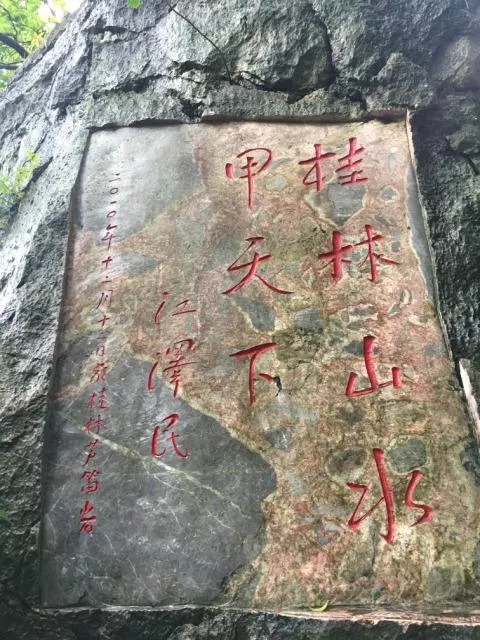 桂林山水
甲天下
江澤民
二〇一〇年十二月十一日 桂林芦笛岩